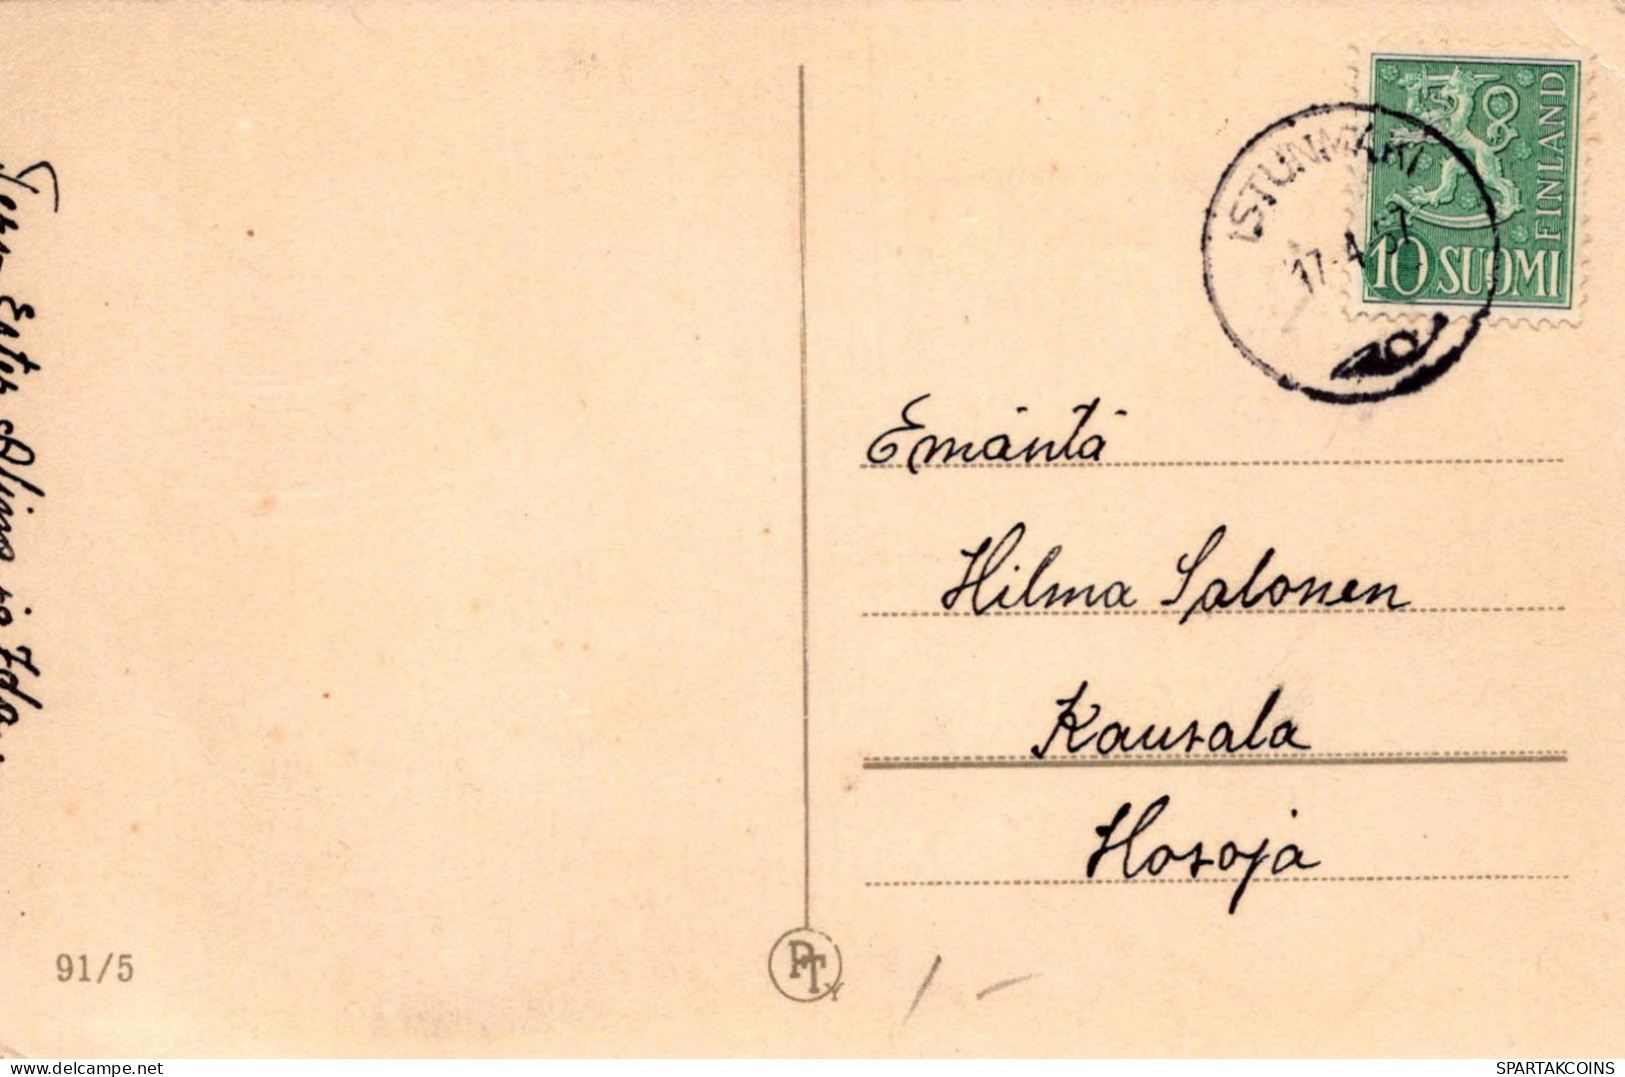 Terv. Ester Alina ja Ida.
ISTUNMÄKI
17.4.57
FINLAND
10 SUOMI
Emäntä
Hilma Salonen
Kausala
Hosoja
91/5
PT
delcampe.net
SPARTAKCOINS